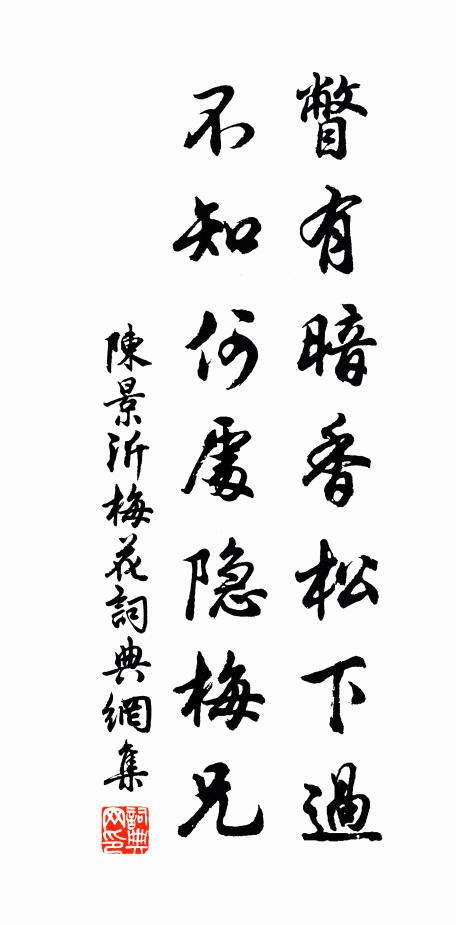 瞥有暗香松下過
不知何處隐梅兄
陳景沂梅花詞典網集
詞典
网印